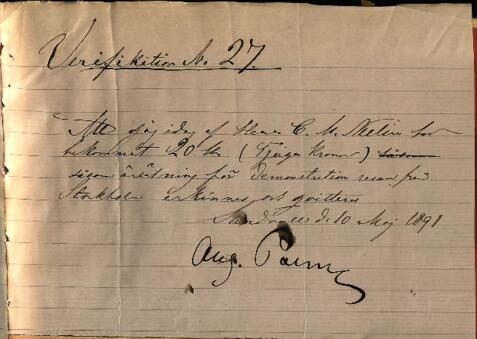 Verifikation N. 27.
Att jag idag af Herr C. M. Nelin for
bekommit 20 kr (Tjugu Kronor)
såsom ärsätning för demonstration resan från
Stokholm erkännes och qvitteras
d. 10 Maj 1891
Aug. Palm